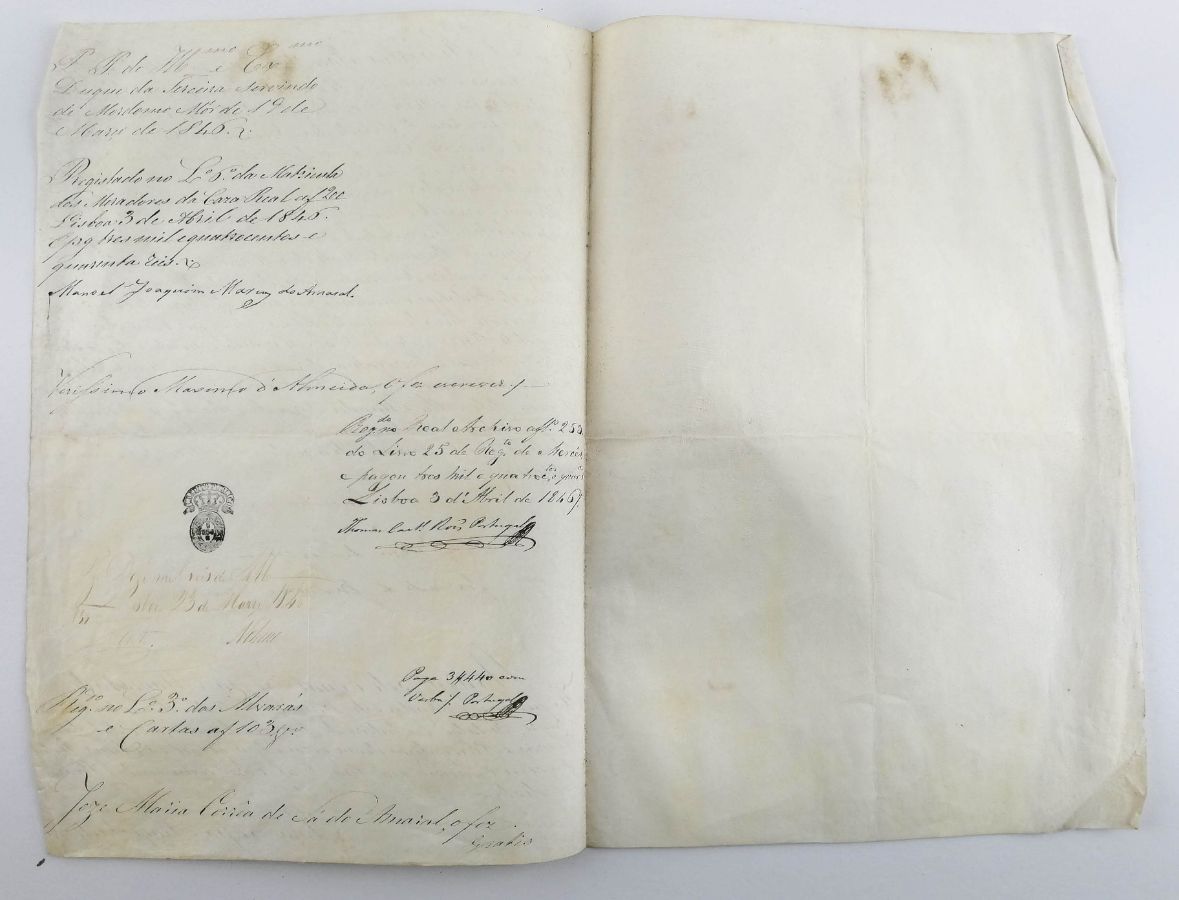 P. P. do Ill.mo e Ex.mo
Duque da Terceira servindo
de Mordomo Mór de 19 de
Março de 1846.
Registado no L.o 6.o da Matricula
dos Moradores da Caza Real a f 200
Lisboa 3 de Abril de 1846.
e pg tres mil e quatrocentos e
quarenta réis.
Manoel Joaquim do Amaral.
Verissimo Maximo d'Almeida, o fez escrever.
Reg.do no Real Archivo a f.
do Livro 25 de Reg.to de Mercês
e pagou tres mil e quatroc.tos e quar.ta
Lisboa 3 d'Abril de 1846
Thomaz Portugal
23 de Março 1846
Paga 3$440 com
Verba Portugal
Reg.o no L.o 3.o dos Alvarás
e Cartas a f 103
Joze Maria Corrêa de Sá do Amaral, o fez.
Gratis